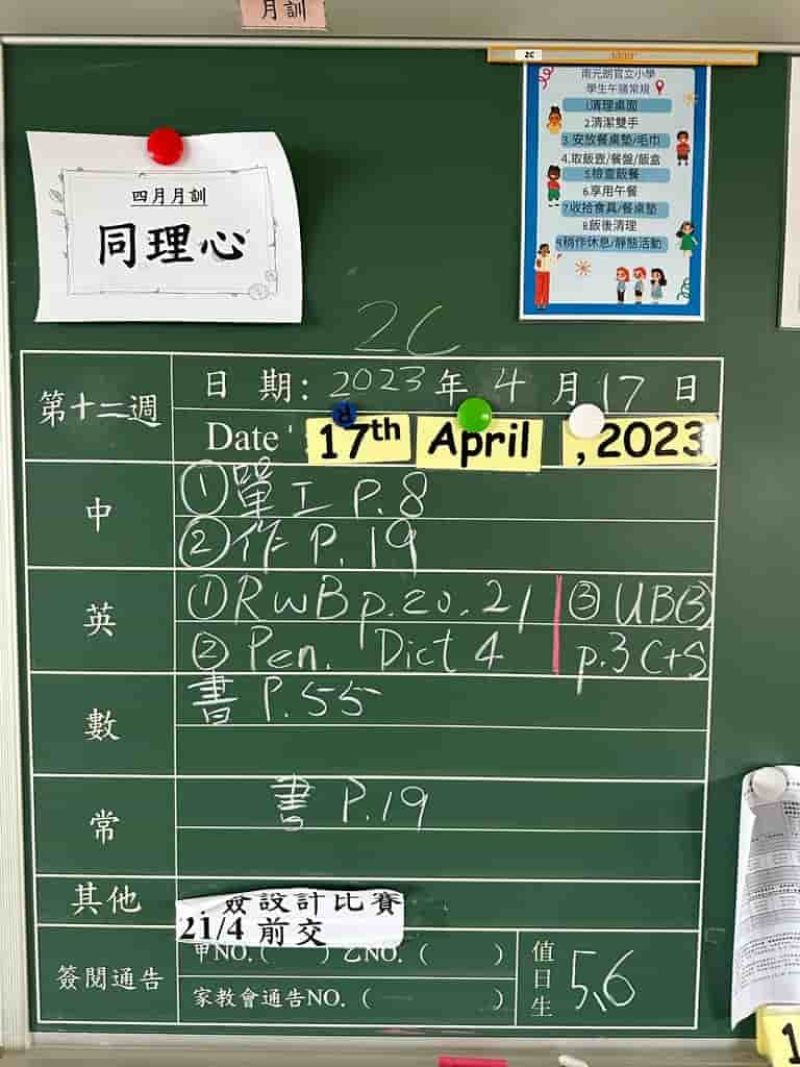 月訓
2C
南元朗官立小學
學生午膳常規
1清理桌面
2.清潔雙手
3.安放餐桌墊/毛巾
4.取飯壺/餐盤/飯盒
5檢查飯餐
6.享用午餐
7收拾食具/餐桌墊
8.飯後清理
9稍作休息/靜態活動
四月月訓
同理心
2C
第十二週
日 期: 2023 年 4 月 17 日
Date 17th April , 2023
中
①單工 P.8
②作 P.19
英
①RWB p.20, 21
②Pen. Dict 4
③UB(B)
p.3 C+S
數
書 P.55
常
書 P.19
其他
設計比賽
21/4 前交
簽閱通告
甲NO.( ) 乙NO. ( )
家教會通告NO. ( )
值日生
5,6
1